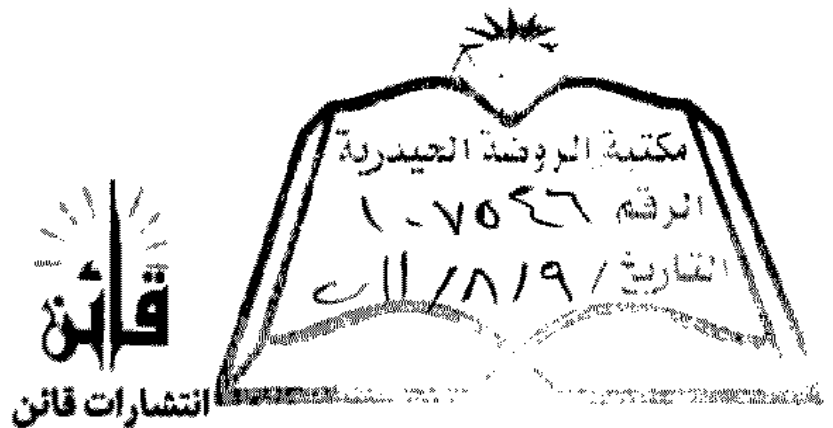 مكتبة الروضة الحيدرية
الرقم ١٠٧٥٤٦
التاريخ / ٩ / ٨ /
قائن
انتشارات قائن